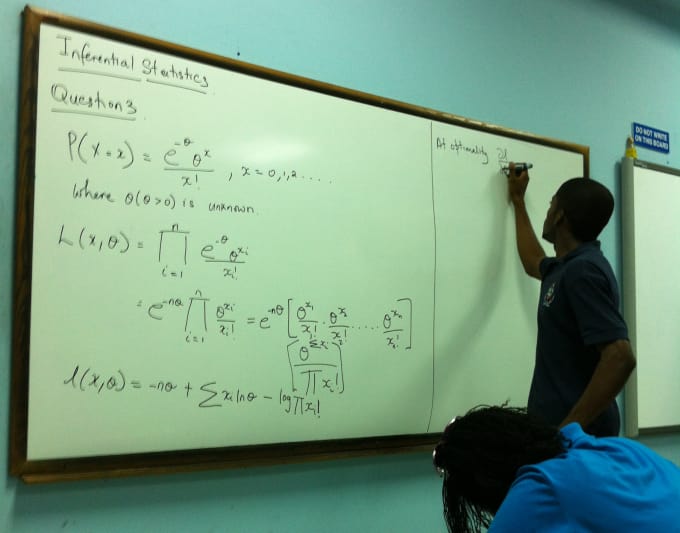 Inferential Statistics
Question 3
P(X=x) = e^-θ θ^x / x! , x = 0,1,2....
where θ(θ>0) is unknown.
L(x,θ) = ∏_{i=1}^{n} e^-θ θ^xi / xi!
= e^-nθ ∏_{i=1}^{n} θ^xi / xi! = e^-nθ [ θ^x1 / x1! · θ^x2 / x2! ..... θ^xn / xn! ]
[ θ^Σxi / ∏ xi! ]
l(x,θ) = -nθ + Σ xi lnθ - log ∏ xi!
At optimality ∂l
DO NOT WRITE
ON THIS BOARD